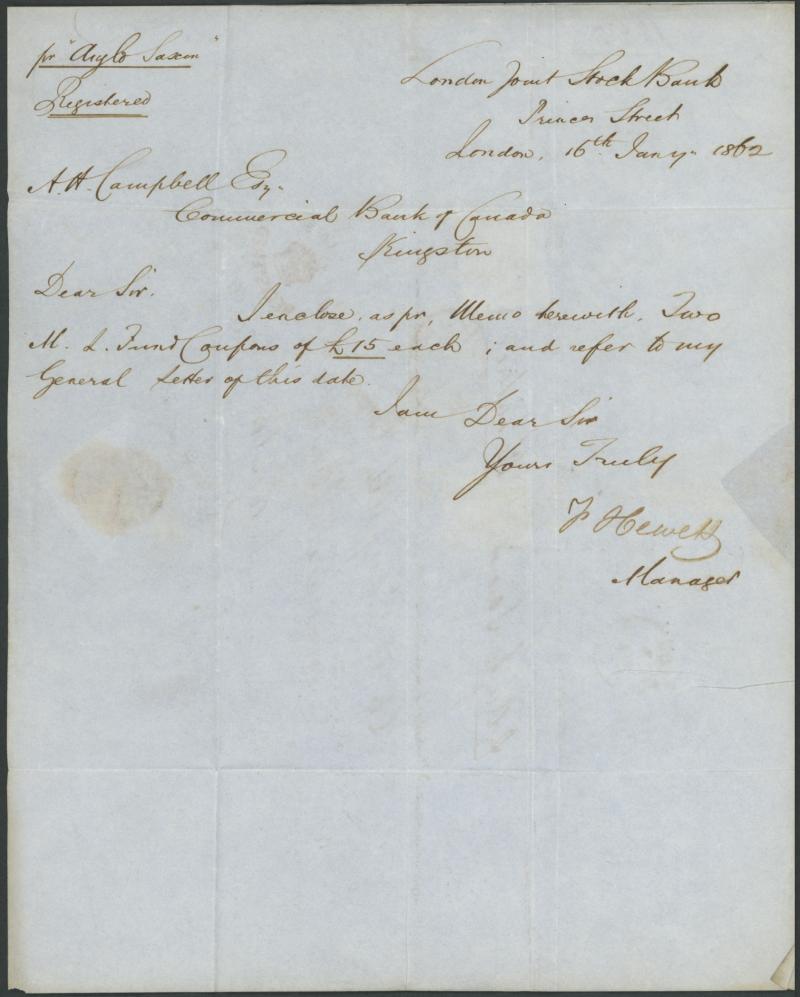 pr "Anglo Saxon"
Registered
London Joint Stock Bank
Princes Street
London, 16th Jany. 1862
A. H. Campbell Esq.
Commercial Bank of Canada
Kingston
Dear Sir.
I enclose, as pr, Memo herewith, Two
M. L. Fund Coupons of £15 each ; and refer to my
General Letter of this date.
I am Dear Sir
Yours Truly
F Hewett
Manager